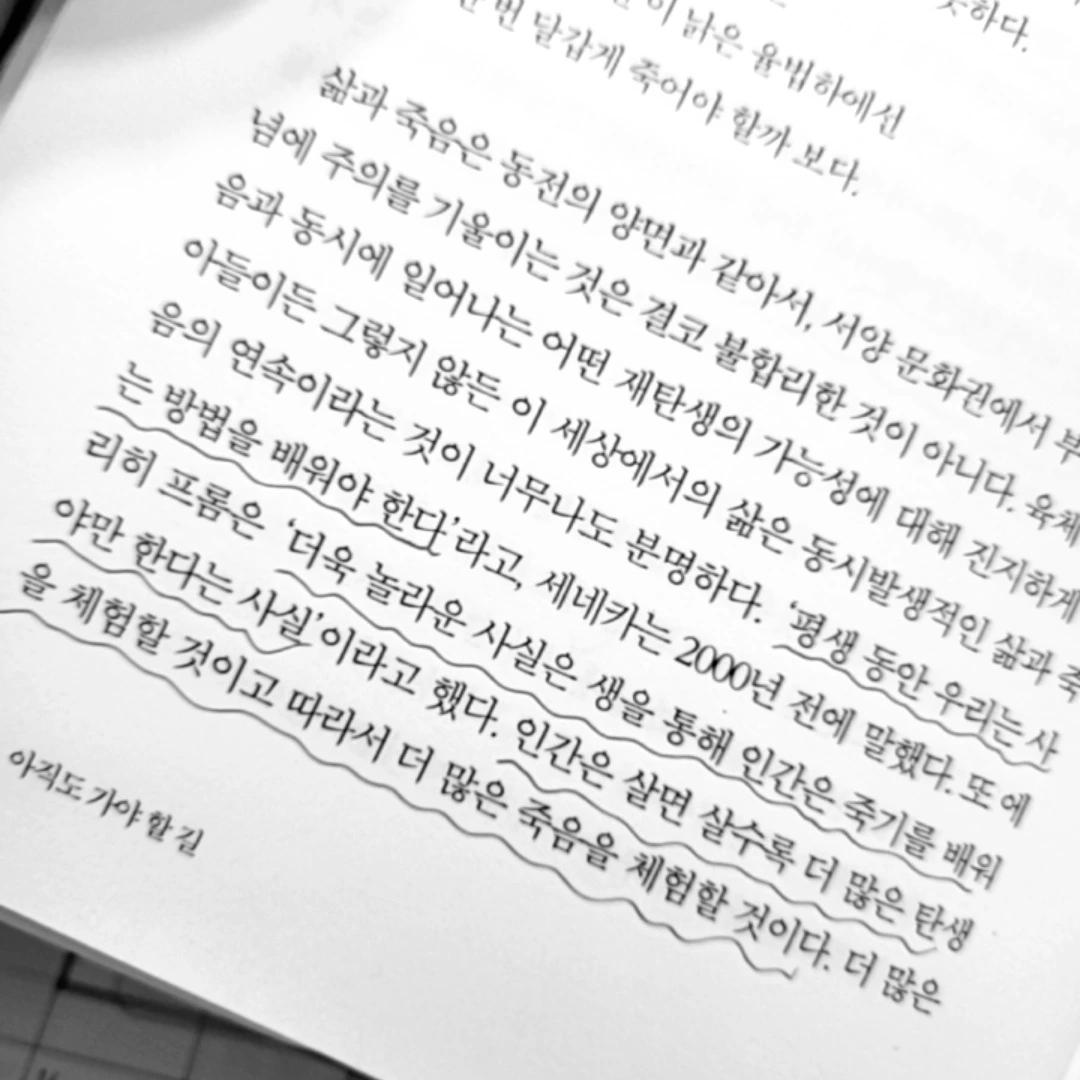 이 낡은 율법하에선
번 달갑게 죽어야 할까 보다.
삶과 죽음은 동전의 양면과 같아서, 서양 문화권에서
념에 주의를 기울이는 것은 결코 불합리한 것이 아니다. 육체
음과 동시에 일어나는 어떤 재탄생의 가능성에 대해 진지하게
아들이든 그렇지 않든 이 세상에서의 삶은 동시발생적인 삶과 죽
음의 연속이라는 것이 너무나도 분명하다. ‘평생 동안 우리는 사
는 방법을 배워야 한다’라고, 세네카는 2000년 전에 말했다. 또 에
리히 프롬은 ‘더욱 놀라운 사실은 생을 통해 인간은 죽기를 배워
야만 한다는 사실’이라고 했다. 인간은 살면 살수록 더 많은 탄생
을 체험할 것이고 따라서 더 많은 죽음을 체험할 것이다. 더 많은
아직도 가야 할 길